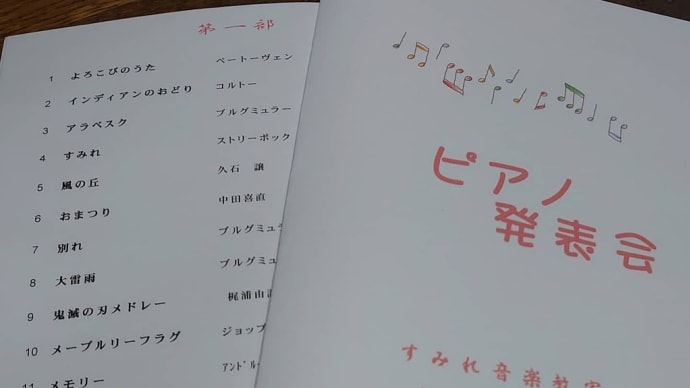 第一部
1 よろこびのうた ベートーヴェン
2 インディアンのおどり コルトー
3 アラベスク ブルグミュラー
4 すみれ ストリーボック
5 風の丘 久石 譲
6 おまつり 中田喜直
7 別れ ブルグミュ
8 大雷雨 ブルグミュ
9 鬼滅の刃メドレー 梶浦由
10 メープルリーフラグ ジョップ
11 メモリー アンドル
ピアノ
発表会
すみれ音楽教